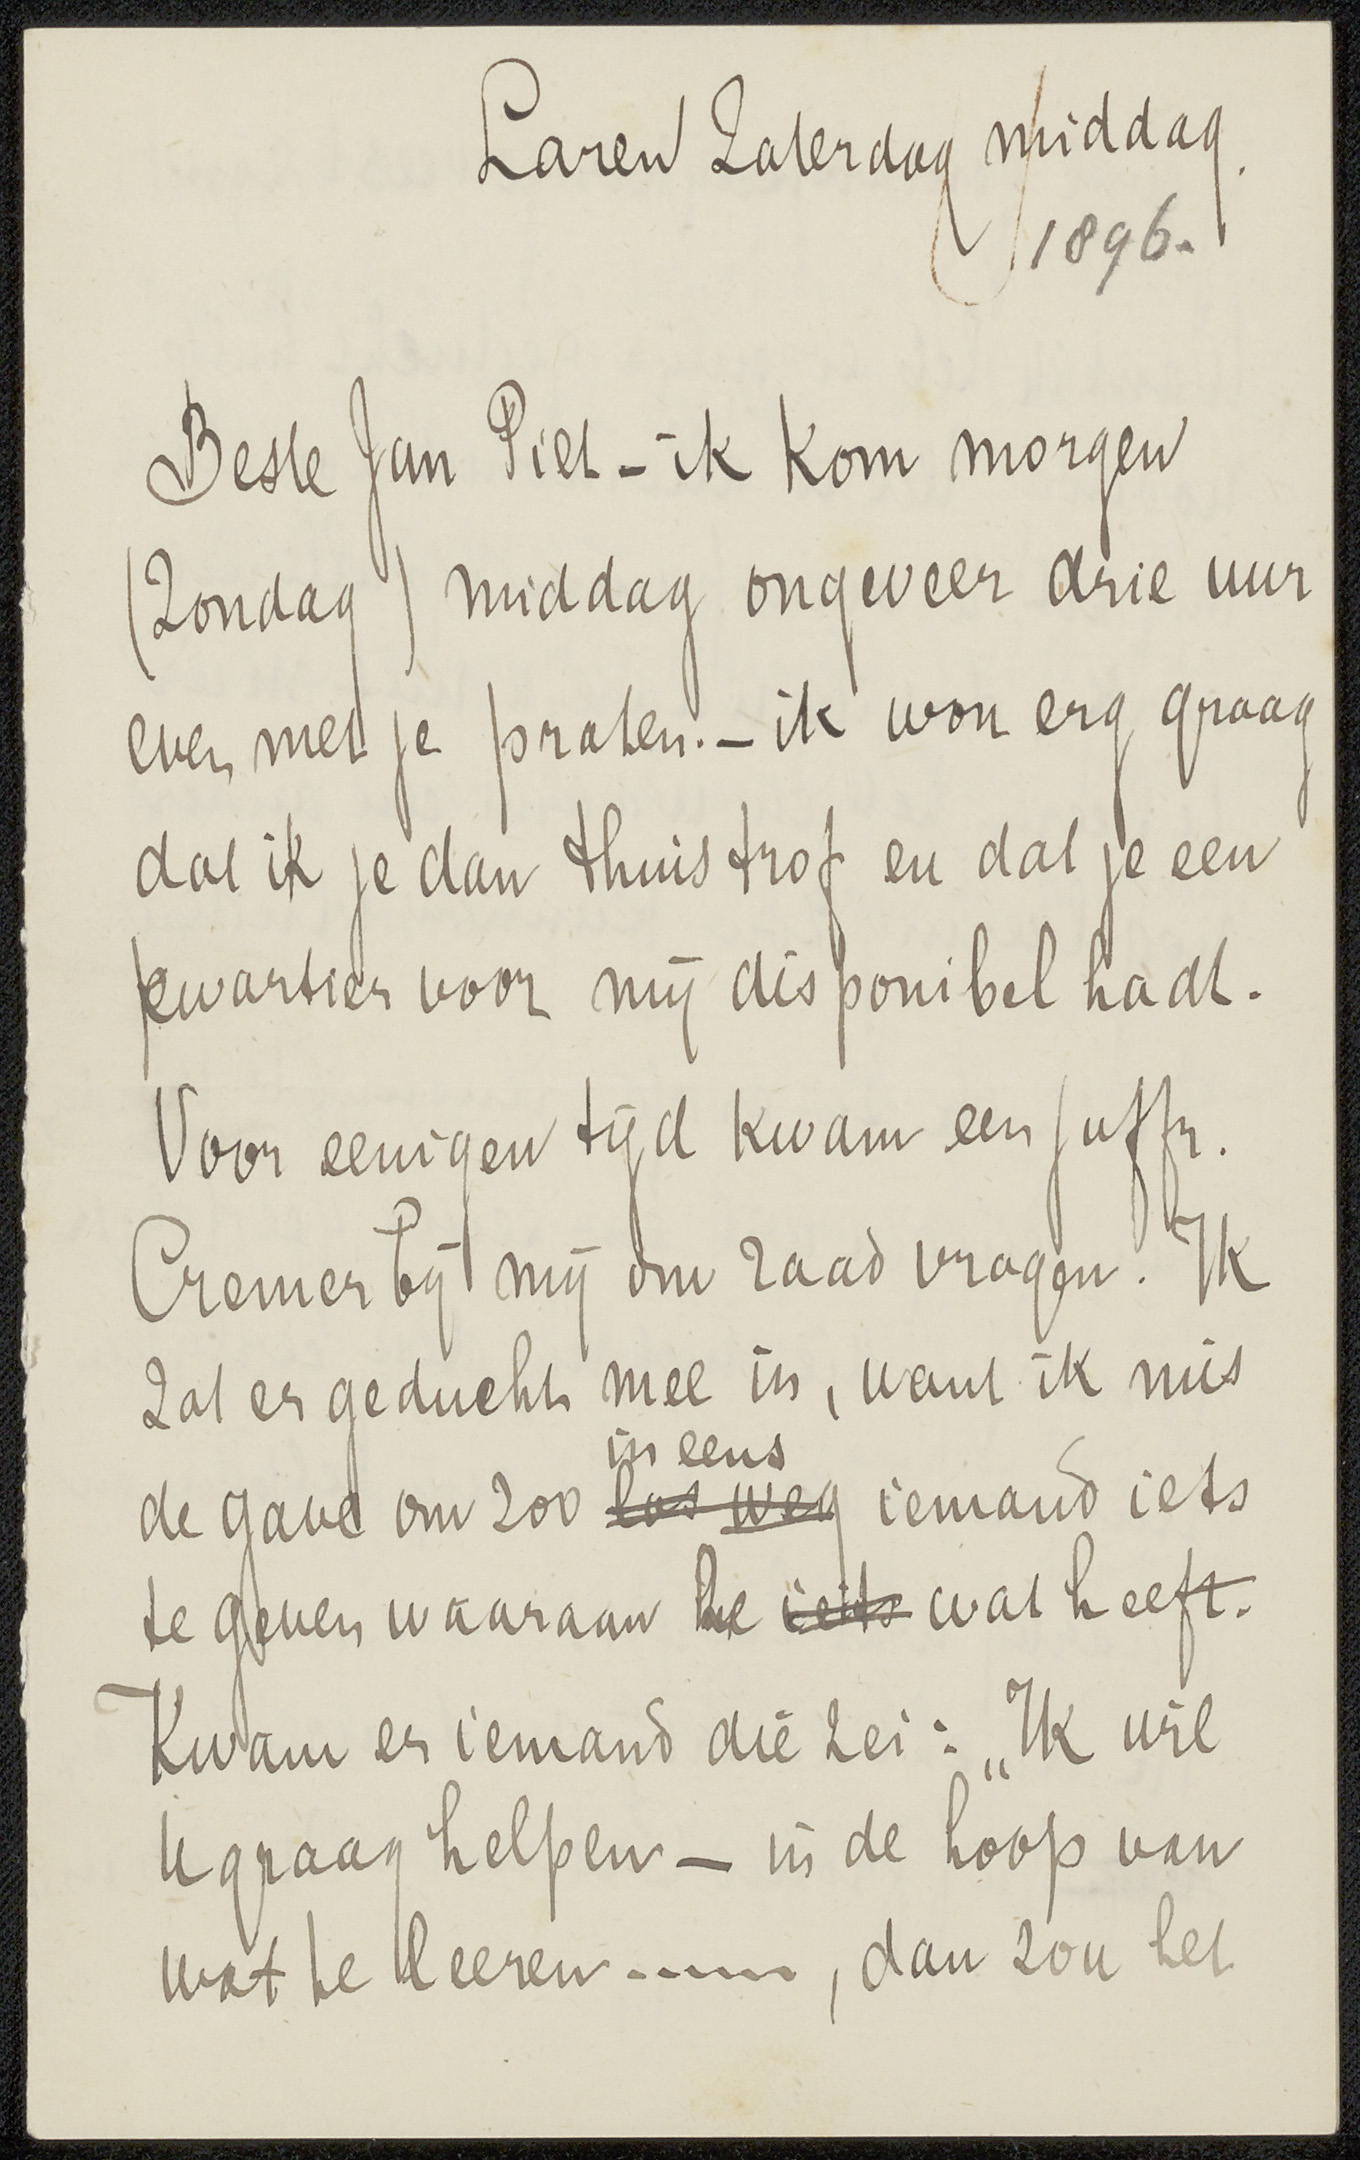 Laren Zaterdag middag.
1896.
Beste Jan Piet - ik kom morgen
(Zondag) middag ongeveer drie uur
even met je praten. - ik wou erg graag
dat ik je dan thuis trof en dat je een
kwartier voor mij disponibel hadt.
Voor eenigen tijd kwam een Juffr.
Cremer bij mij om raad vragen. Ik
zat er geducht mee in, want ik mis
in eens
de gave om zoo los weg iemand iets
te geven waaraan he iets wat heeft.
Kwam er iemand die zei: „Ik wil
U graag helpen - in de hoop van
wat te leeren ......, dan zou het